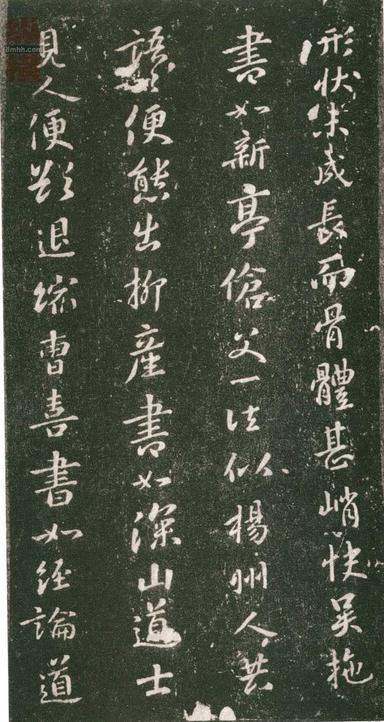 形状未成長而骨體甚峭快吴拖
書如新亭傖父一往似楊州人共
語便態出柳産書如深山道士
見人便欲退縮曹喜書如經論道
8mhh.com